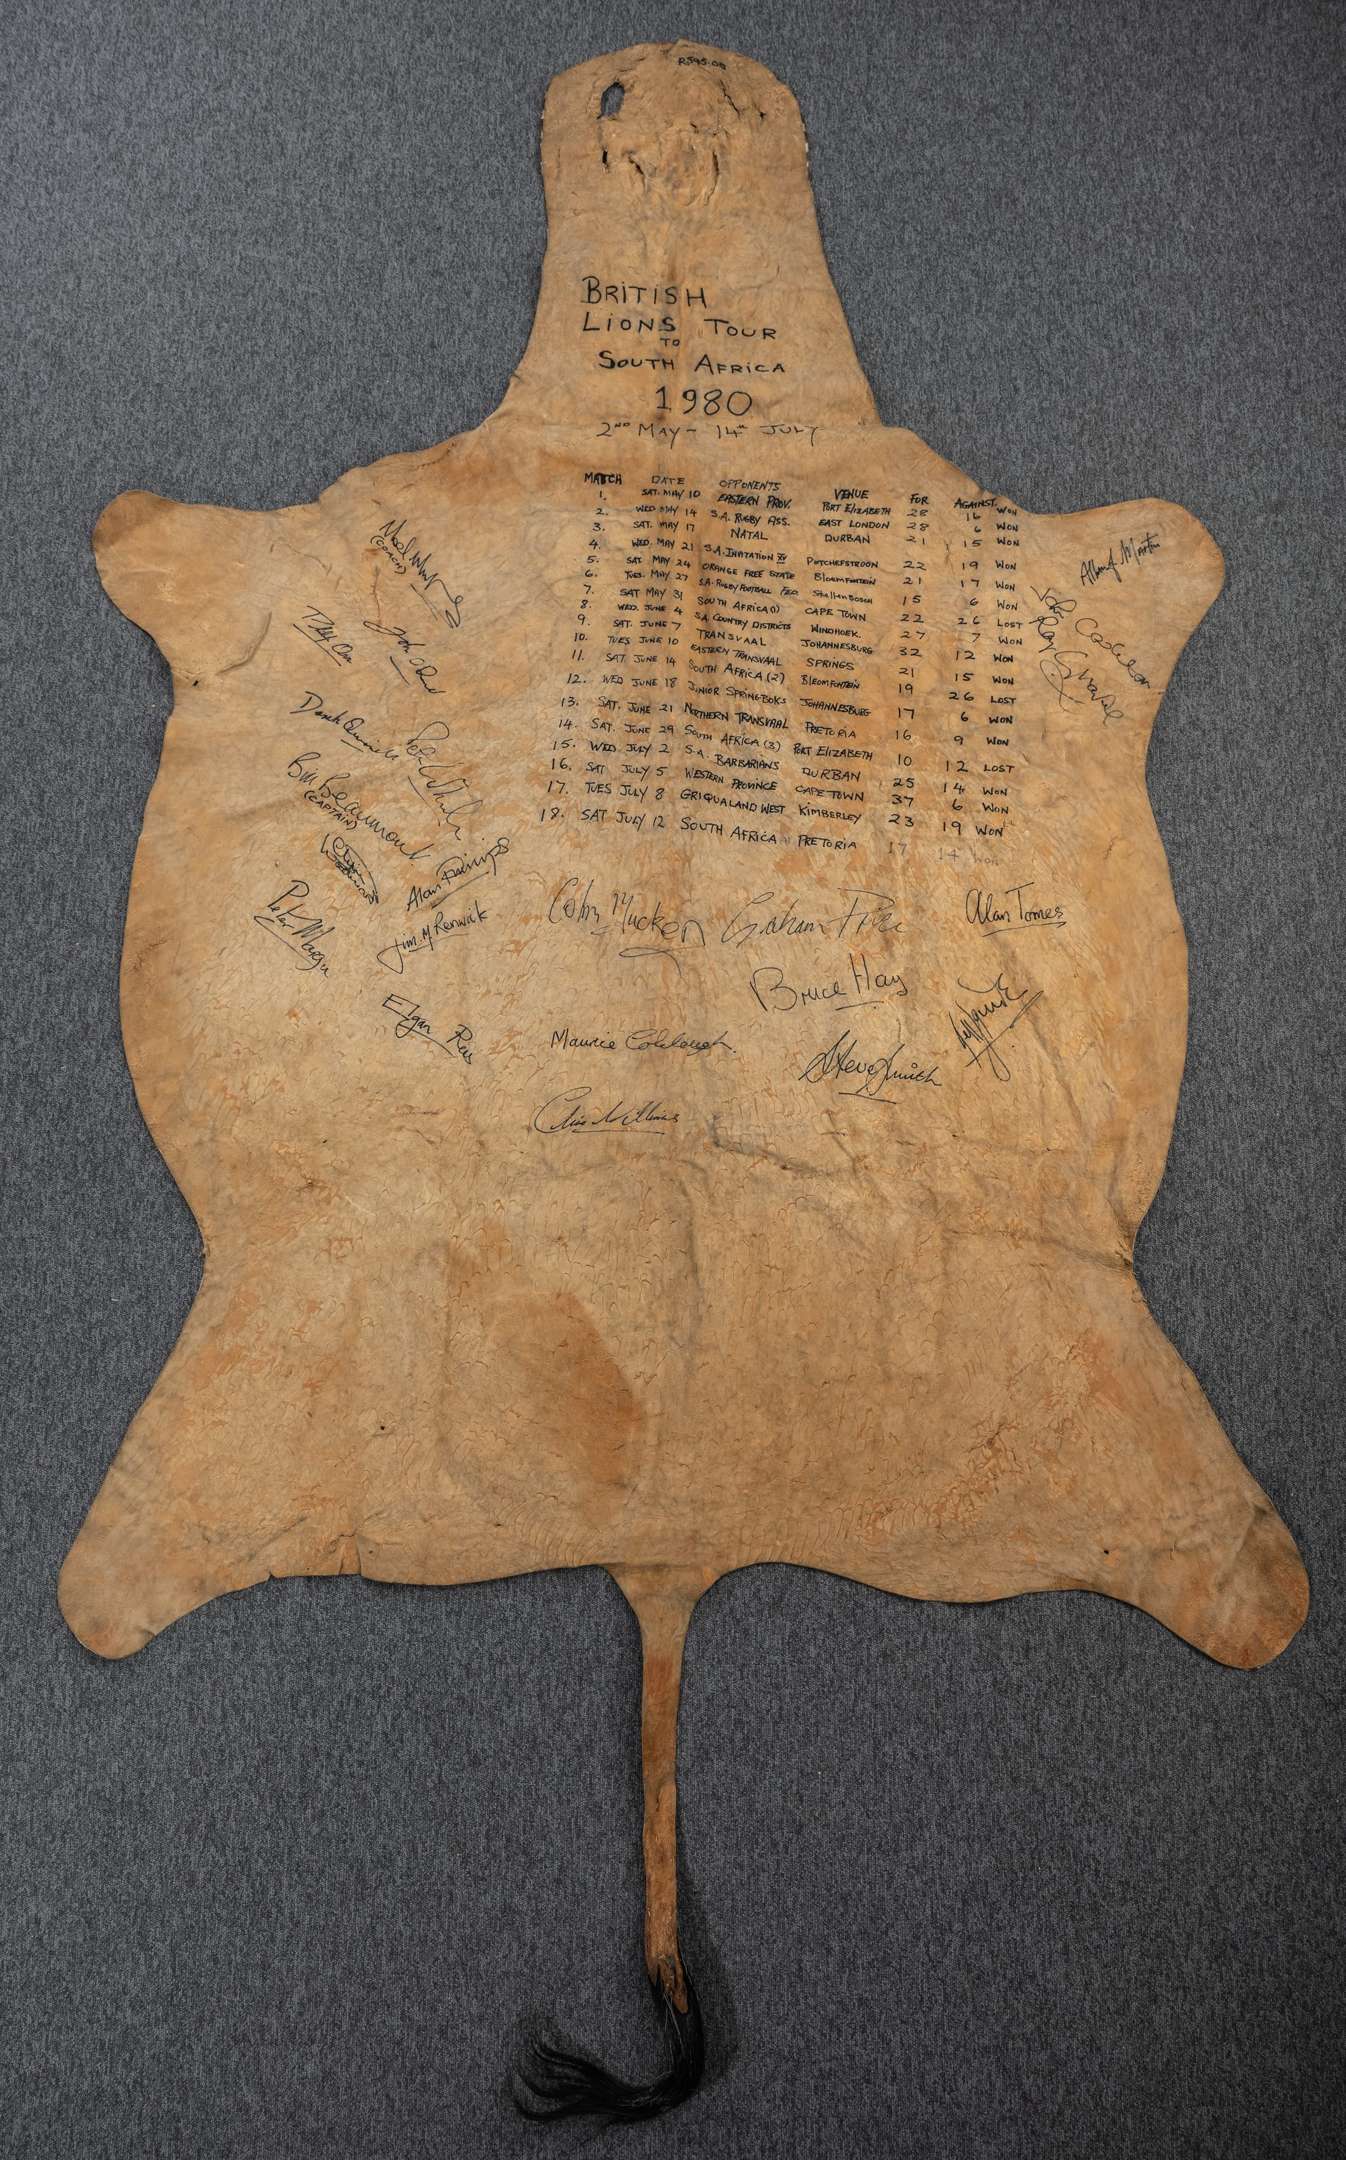 R595.00
BRITISH
LIONS TOUR
TO
SOUTH AFRICA
1980
2ND MAY - 14TH JULY
MATCH DATE OPPONENTS VENUE FOR AGAINST
1. SAT. MAY 10 EASTERN PROV. PORT ELIZABETH 28 16 WON
2. WED MAY 14 S.A. RUGBY ASS. EAST LONDON 28 6 WON
3. SAT. MAY 17 NATAL DURBAN 21 15 WON
4. WED. MAY 21 S.A. INVITATION XV POTCHEFSTROON 22 19 WON
5. SAT MAY 24 ORANGE FREE STATE BLOEMFONTEIN 21 17 WON
6. TUES. MAY 27 S.A. RUGBY FOOTBALL FED. StellenBosch 15 6 WON
7. SAT MAY 31 SOUTH AFRICA (1) CAPE TOWN 22 26 LOST
8. WED. JUNE 4 S.A. COUNTRY DISTRICTS WINDHOEK. 27 7 WON
9. SAT. JUNE 7 TRANSVAAL JOHANNESBURG 32 12 WON
10. TUES JUNE 10 EASTERN TRANSVAAL SPRINGS 21 15 WON
11. SAT JUNE 14 SOUTH AFRICA (2) BLEOMFONTEIN 19 26 LOST
12. WED JUNE 18 JUNIOR SPRINGBOKS JOHANNESBURG 17 6 WON
13. SAT. JUNE 21 NORTHERN TRANSVAAL PRETORIA 16 9 WON
14. SAT. JUNE 29 SOUTH AFRICA (3) PORT ELIZABETH 10 12 LOST
15. WED JULY 2 S.A. BARBARIANS DURBAN 25 14 WON
16. SAT JULY 5 WESTERN PROVINCE CAPE TOWN 37 6 WON
17. TUES JULY 8 GRIQUALAND WEST KIMBERLEY 23 19 WON
18. SAT JULY 12 SOUTH AFRICA PRETORIA 17 14 WON
(COACH)
Allan J. Martin
John
Ray Gravell
Derek Quinnell
Peter
Bill Beaumont
(CAPTAIN)
Alan Phillips
Jim. M Renwick
Peter Morgan
Elgan Rees
Graham Price
Alan Tomes
Bruce Hay
Maurice Colclough.
Steve Smith
Clive Williams